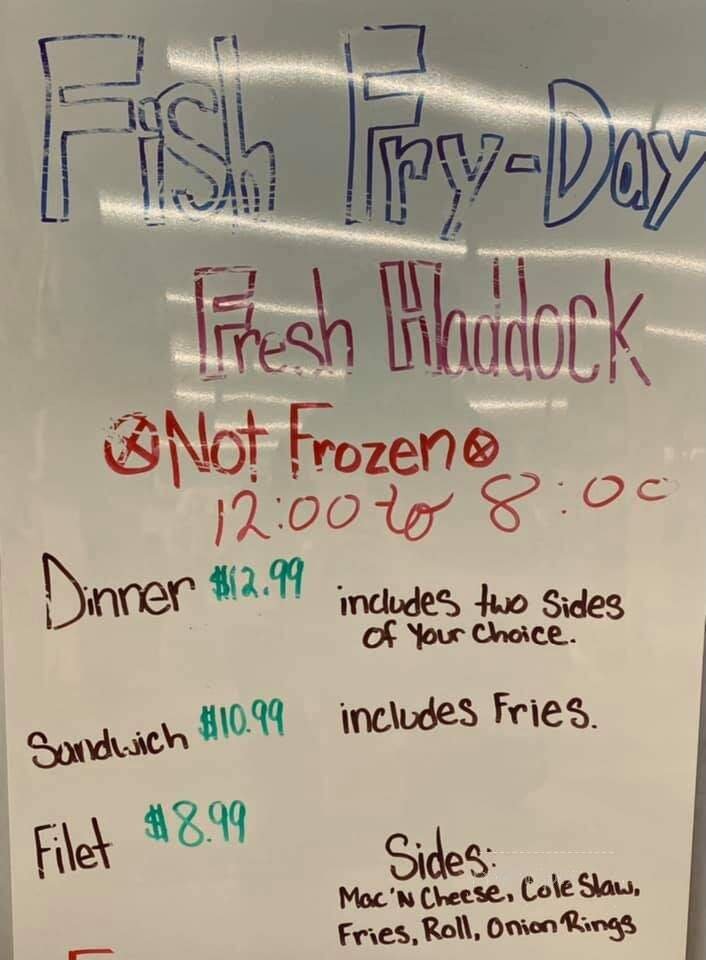 Fish Fry-Day
Fresh Haddock
Not Frozen
12:00 to 8:00
Dinner $12.99 includes two sides
of Your Choice.
Sandwich $10.99 includes Fries.
Filet $8.99
Sides:
Mac 'N Cheese, Cole Slaw,
Fries, Roll, Onion Rings